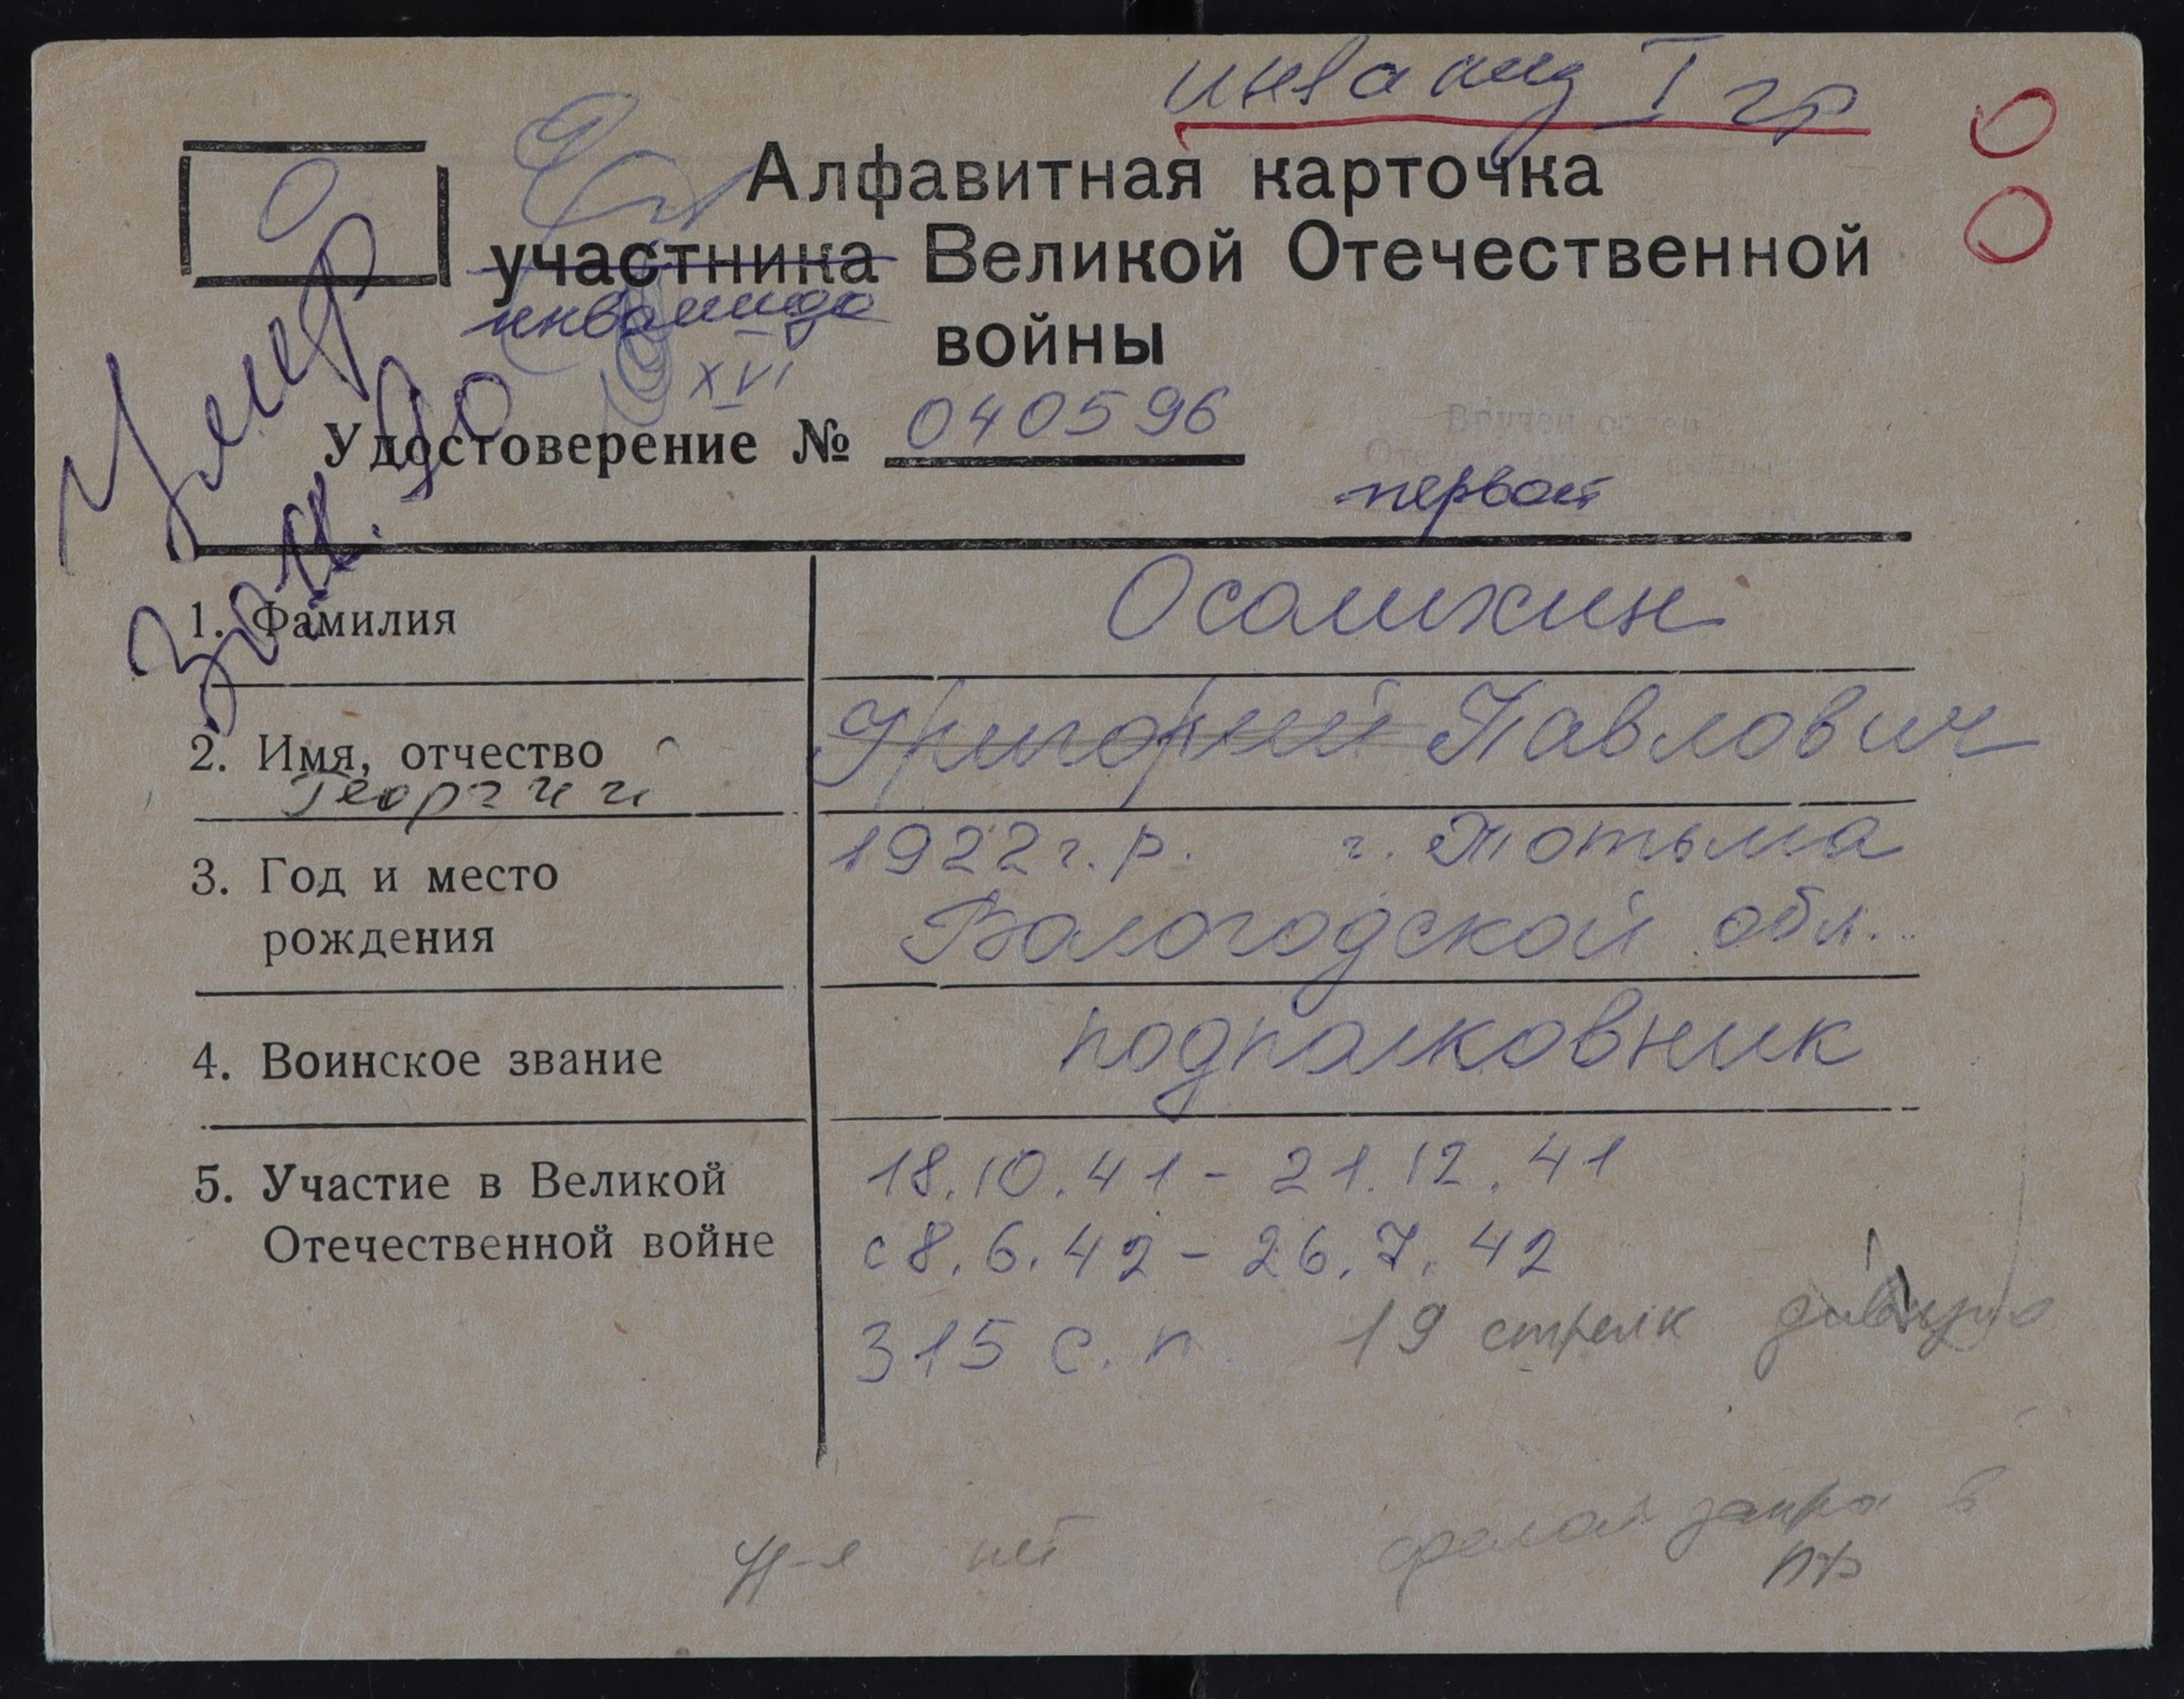 инвалид I гр
О
Алфавитная карточка
участника Великой Отечественной
инвалида
войны
XVI
Умер
до
зам.
Удостоверение № 040596
Вручен орден
Отечественной войны
первой
1. Фамилия Осалихин
2. Имя, отчество Григорий Павлович
Георгий
3. Год и место 1922 г.р. г. Тотьма
рождения Вологодской обл.
4. Воинское звание подполковник
5. Участие в Великой 18.10.41 - 21.12.41
Отечественной войне с 8.6.42 - 26.7.42
315 с.п. 19 стрелк дивизия
уд-я нет
сделал запро в